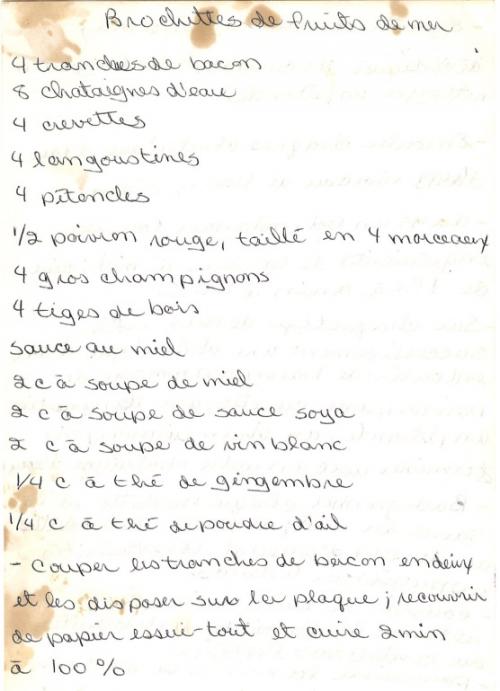 Brochettes de fruits de mer
4 tranches de bacon
8 chataignes d'eau
4 crevettes
4 langoustines
4 pétoncles
1/2 poivron rouge, taillé en 4 morceaux
4 gros champignons
4 tiges de bois
sauce au miel
2 c à soupe de miel
2 c à soupe de sauce soya
2 c à soupe de vin blanc
1/4 c à thé de gingembre
1/4 c à thé de poudre d'ail
- Couper les tranches de bacon en deux
et les disposer sur la plaque; recouvrir
de papier essuie-tout et cuire 2 min
à 100 %